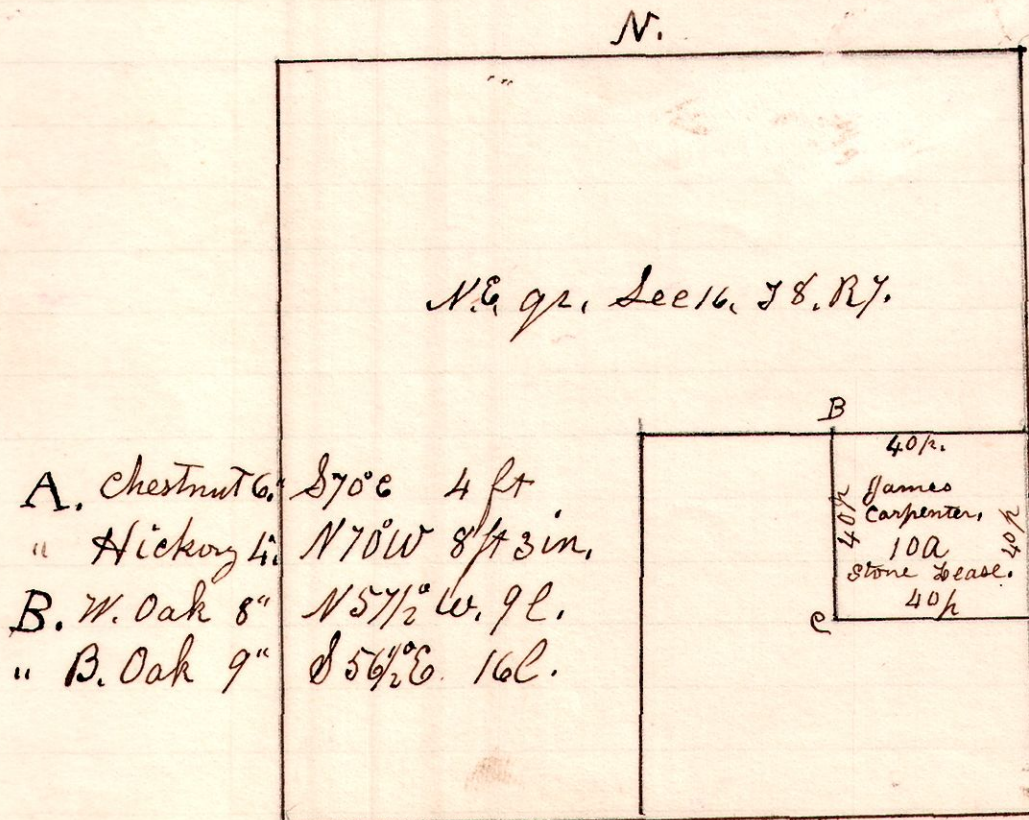 N.
N.E. qr. Sec 16, T 8. R 7.
B
40 p.
40 p
James
Carpenter,
10 a
Stone Lease.
40 p
40 p
C
A. Chestnut 6" S 70° E 4 ft
" Hickory 4" N 70° W 8 ft 3 in.
B. W. Oak 8" N 57 1/2° W. 9 l.
" B. Oak 9" S 56 1/2° E. 16 l.